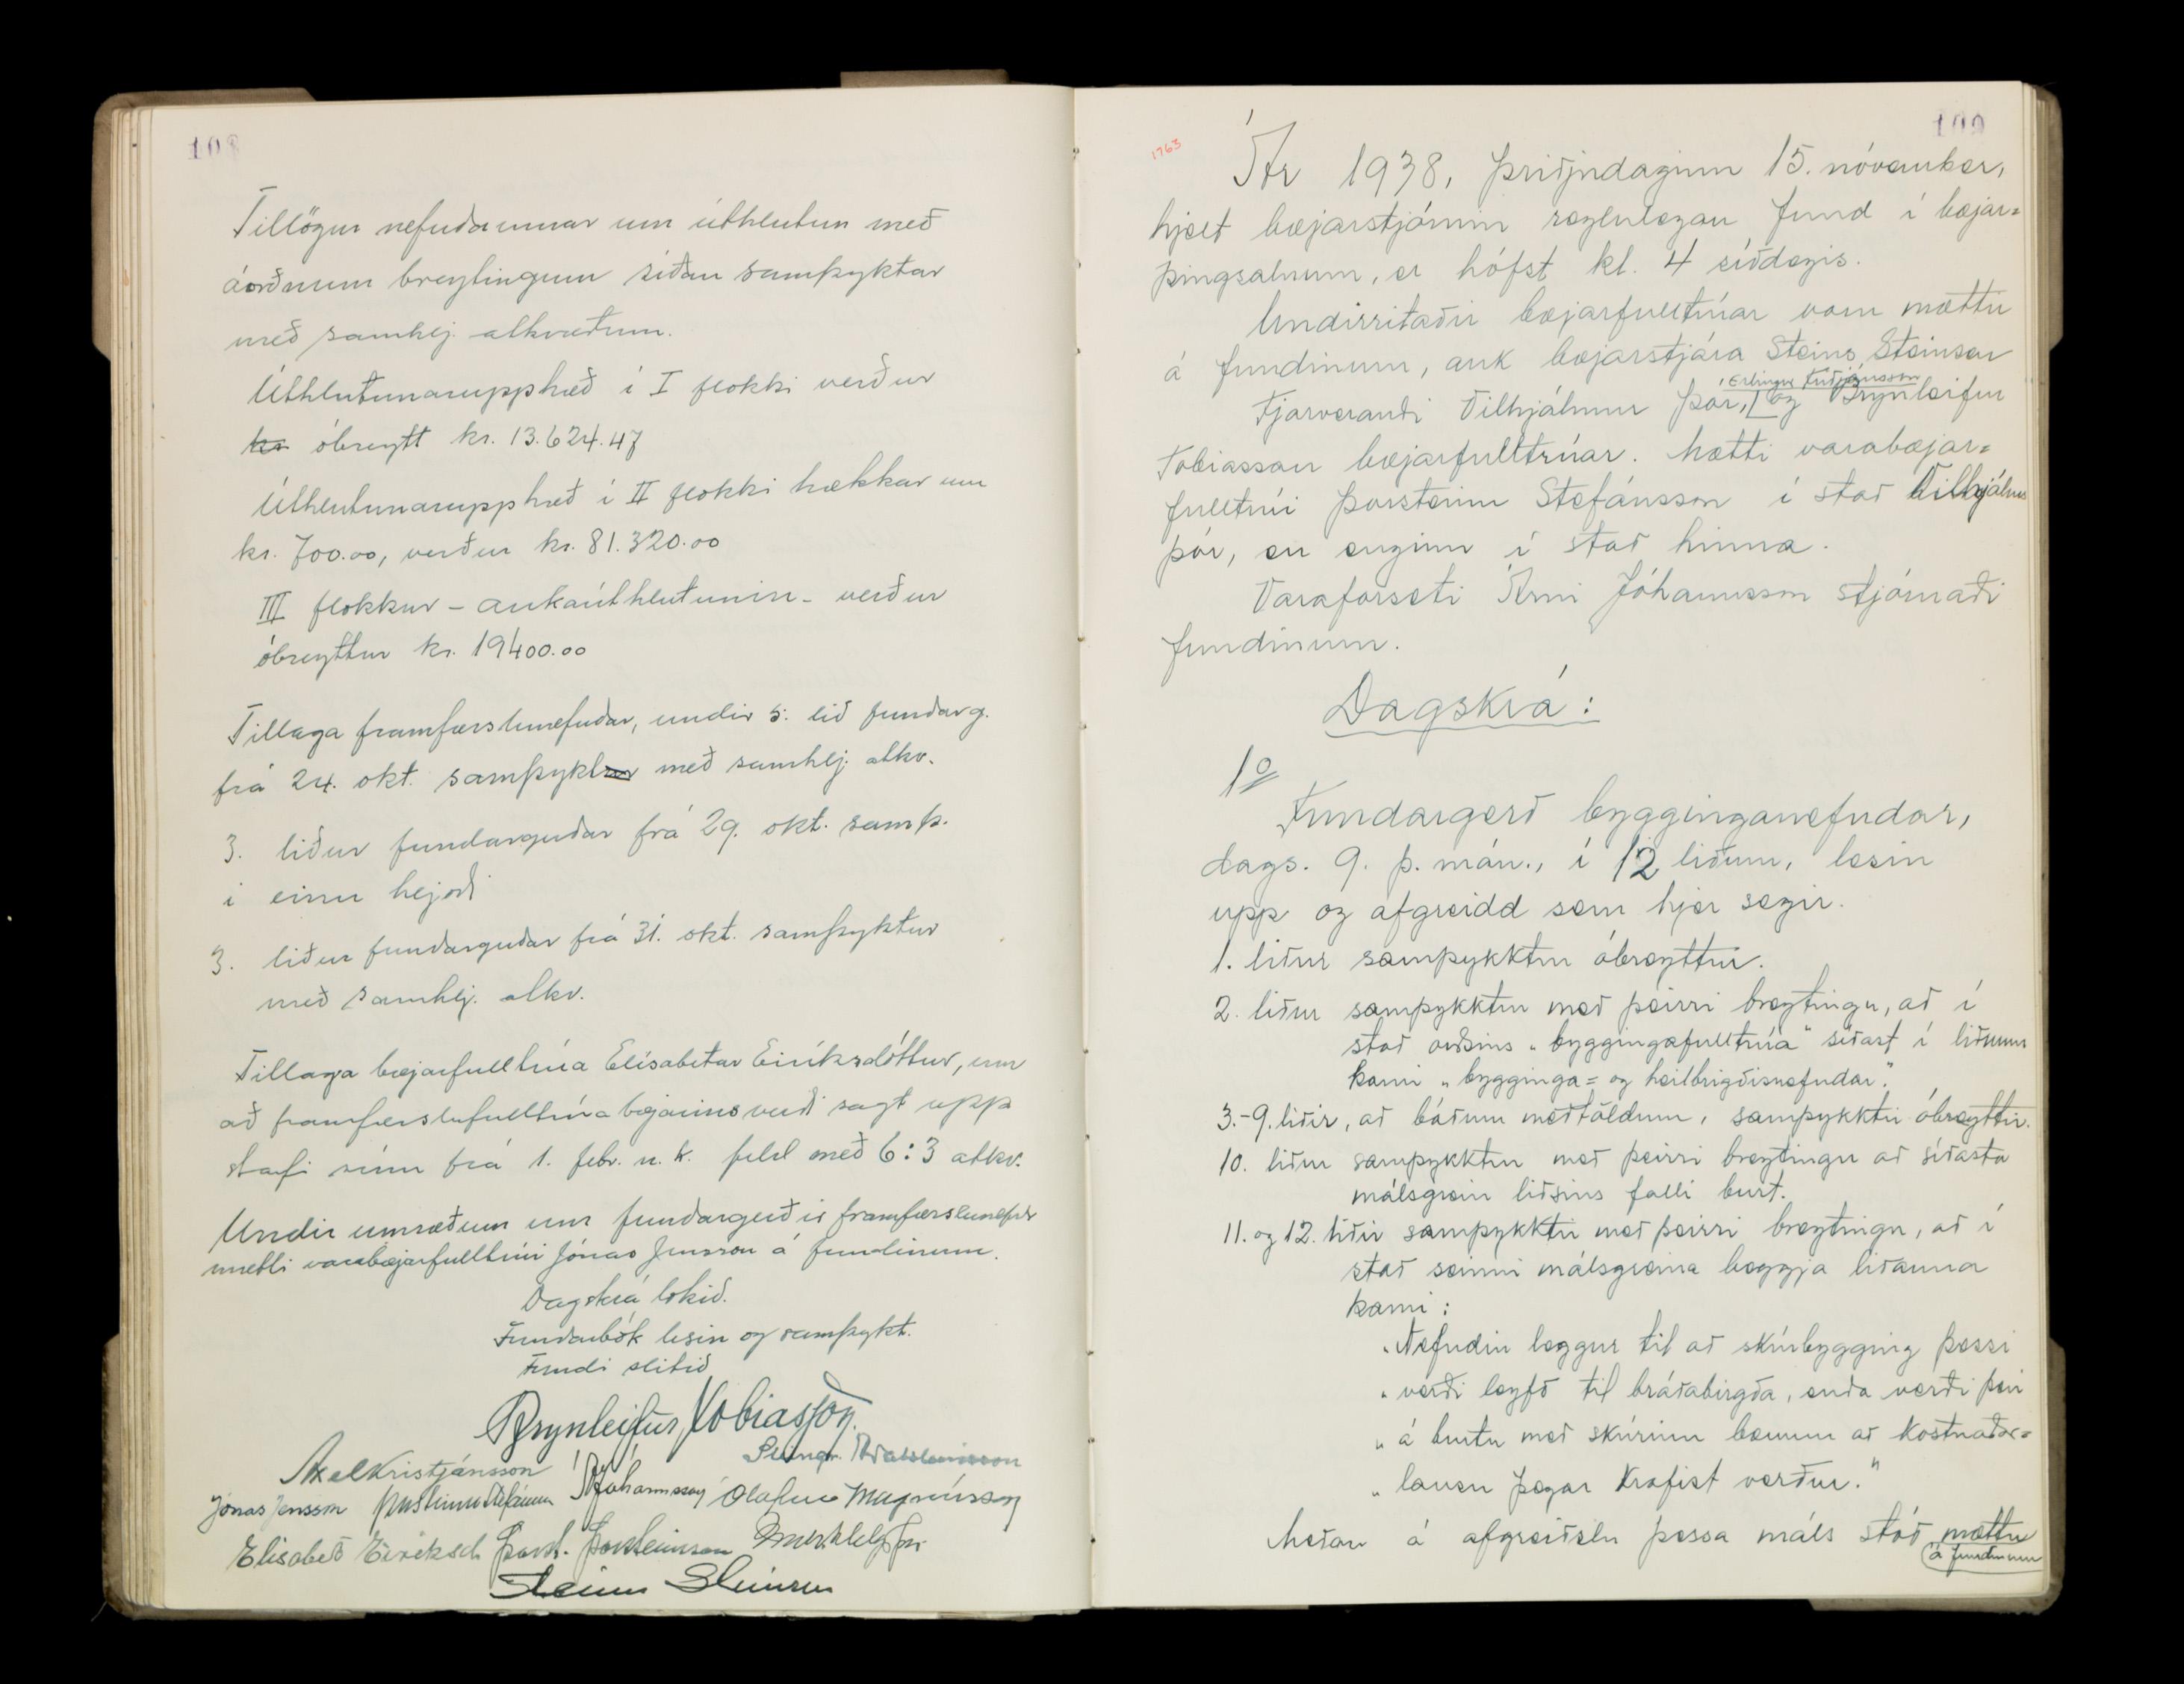 108
Tillögur nefndarinnar um úthlutun með
áorðnum breytingum síðan samþyktar
með samhlj. atkvæðum.
Úthlutunarupphæð í I flokki verður
kr óbreytt kr. 13.624.47
Úthlutunarupphæð í II flokki hækkar um
kr. 700.00, verður kr. 81.320.00
III flokkur - aukaúthlutunin - verður
óbreyttur kr. 19400.00
Tillaga framfærslunefndar, undir 5. lið fundarg.
frá 24. okt. samþykt með samhlj. atkv.
3. liður fundargerðar frá 29. okt. samþ.
í einu hljóði
3. liður fundargerðar frá 31. okt. samþyktur
með samhlj. atkv.
Tillaga bæjarfulltrúa Elísabetar Eiríksdóttur, um
að framfærslufulltrúa bæjarins verði sagt upp
starfi sínu frá 1. febr. n. k. feld með 6:3 atkv.
Undir umræðum um fundargerðir framfærslunefndar
mætti varabæjarfulltrúi Jónas Jensson á fundinum.
Dagskrá lokið.
Fundarbók lesin og samþykt.
Fundi slitið
Brynleifur Tobiasson.
Axel Kristjánsson
Jónas Jensson Þorsteinn Stefánsson Á Jóhannsson Ólafur Magnússon
Elísabet Eiríksd Þorst. Þorsteinsson
Steinn Steinsen
109
1763
Ár 1938, þriðjudaginn 15. nóvember,
hjelt bæjarstjórnin reglulegan fund í bæjar=
þingsalnum, er hófst kl. 4 síðdegis.
Undirritaðir bæjarfulltrúar voru mættir
á fundinum, auk bæjarstjóra Steins Steinsen
Erlingur Friðjónsson
Fjarverandi Vilhjálmur Þór, og Brynleifur
Tobiasson bæjarfulltrúar. Mætti varabæjar=
fulltrúi Þorsteinn Stefánsson í stað Vilhjálms
Þór, en enginn í stað hinna.
Varaforseti Árni Jóhannsson stjórnaði
fundinum.
Dagskrá:
1o
Fundargerð bygginganefndar,
dags. 9. þ. mán., í 12 liðum, lesin
upp og afgreidd sem hjer segir.
1. liður samþykktur óbreyttur.
2. liður samþykktur með þeirri breytingu, að í
stað orðsins „byggingafulltrúa" síðast í liðnum
komi „bygginga= og heilbrigðisnefndar."
3.-9. liðir, að báðum meðtöldum, samþykktir óbreyttir.
10. liður samþykktur með þeirri breytingu að síðasta
málsgrein liðsins falli burt.
11. og 12. liðir samþykktir með þeirri breytingu, að í
stað seinni málsgreina beggja liðanna
komi:
„Nefndin leggur til að skúrbygging þessi
„verði leyfð til bráðabirgða, enda verði þeir
„á burtu með skúrinn bænum að kostnaðar=
„lausu þegar krafist verður."
Meðan á afgreiðslu þessa máls stóð mættu
á fundinum